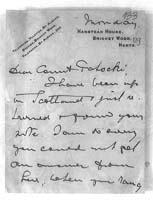 Monday
HANSTEAD HOUSE,
BRICKET WOOD,
HERTS.
Dear Count Potocki
I have been up
in Scotland & just re-
turned & found your
note I am so sorry
you could not get
an answer from
here, when you rang